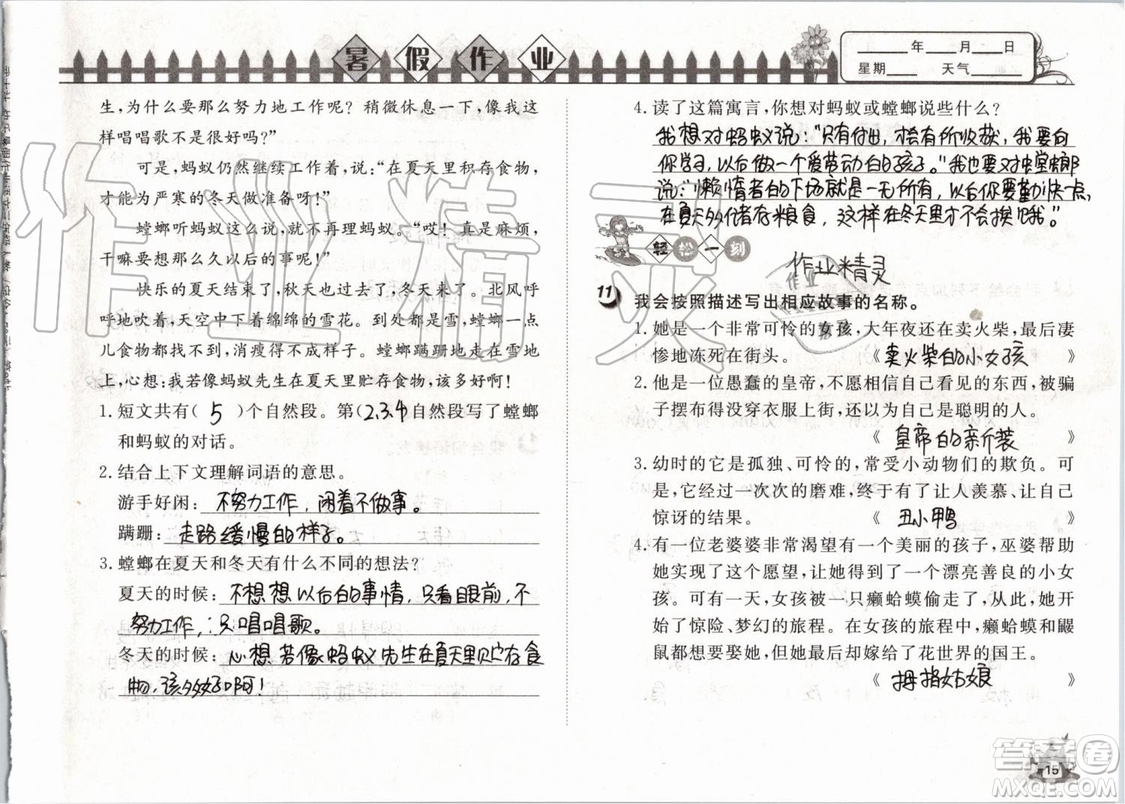 暑假作业
____年____月____日
星期____ 天气____
生,为什么要那么努力地工作呢?稍微休息一下,像我这
样唱唱歌不是很好吗?”
可是,蚂蚁仍然继续工作着,说:“在夏天里积存食物,
才能为严寒的冬天做准备呀!”
螳螂听蚂蚁这么说,就不再理蚂蚁:“哎!真是麻烦,
干嘛要想那么久以后的事呢!”
快乐的夏天结束,秋天也过去,冬天来了。北风呼
呼地吹着,天空中下着绵绵的雪花。到处都是雪,螳螂一点
儿食物都找不到,消瘦得不成样子。螳螂蹒跚地走在雪地
上,心想:我若像蚂蚁先生在夏天里贮存食物,该多好啊!
1. 短文共有( 5 )个自然段。第( 2.3.4 )自然段写了螳螂
和蚂蚁的对话。
2. 结合上下文理解词语的意思。
游手好闲:不努力工作,闲着不做事。
蹒跚:走路缓慢的样子。
3. 螳螂在夏天和冬天有什么不同的想法?
夏天的时候:不想想以后的事情,只看眼前,不
努力工作,只唱唱歌。
冬天的时候:心想若像蚂蚁先生在夏天里贮存食
物,该多好啊!
4. 读了这篇寓言,你想对蚂蚁或螳螂说些什么?
我想对蚂蚁说:“只有付出,才会有所收获,我要向
你学习,以后做一个爱劳动的孩子。”我也要对螳螂
说:“懒惰者的下场就是一无所有,以后你要勤快点,
在夏天多储存粮食,这样在冬天里才不会挨饿。”
轻松一刻
作业精灵
11 我会按照描述写出相应故事的名称。
1. 她是一个非常可怜的女孩,大年夜还在卖火柴,最后凄
惨地冻死在街头。《 卖火柴的小女孩 》
2. 他是一位愚蠢的皇帝,不愿相信自己看见的东西,被骗
子摆布得没穿衣服上街,还以为自己是聪明的人。
《 皇帝的新装 》
3. 幼时的它是孤独、可怜的,常受小动物们的欺负。可
是,它经过一次次的磨难,终于有了让人羡慕、让自己
惊讶的结果。《 丑小鸭 》
4. 有一位老婆婆非常渴望有一个美丽的孩子,巫婆帮助
她实现了这个愿望,让她得到了一个漂亮善良的小女
孩。可是有一天,女孩被一只癞蛤蟆偷走了,从此,她开
始了惊险、梦幻的旅程。在女孩的旅程中,癞蛤蟆和鼹
鼠都想要娶她,但她最后却嫁给了花世界的国王。
《 拇指姑娘 》
15
作业精灵
答案圈
MXQE.COM